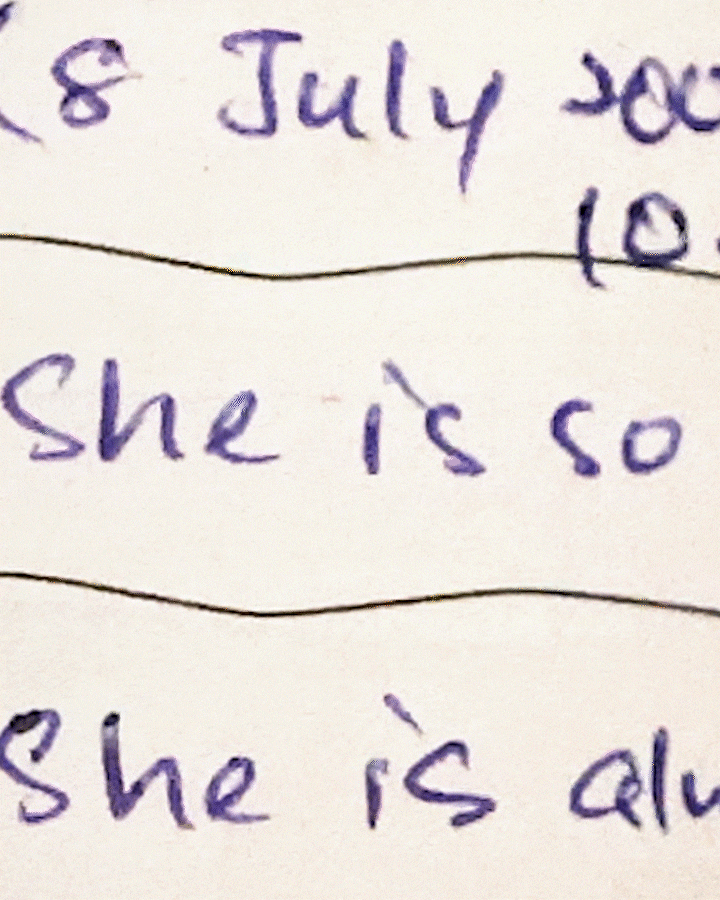 (8 July 200
10.
She is so
She is alw